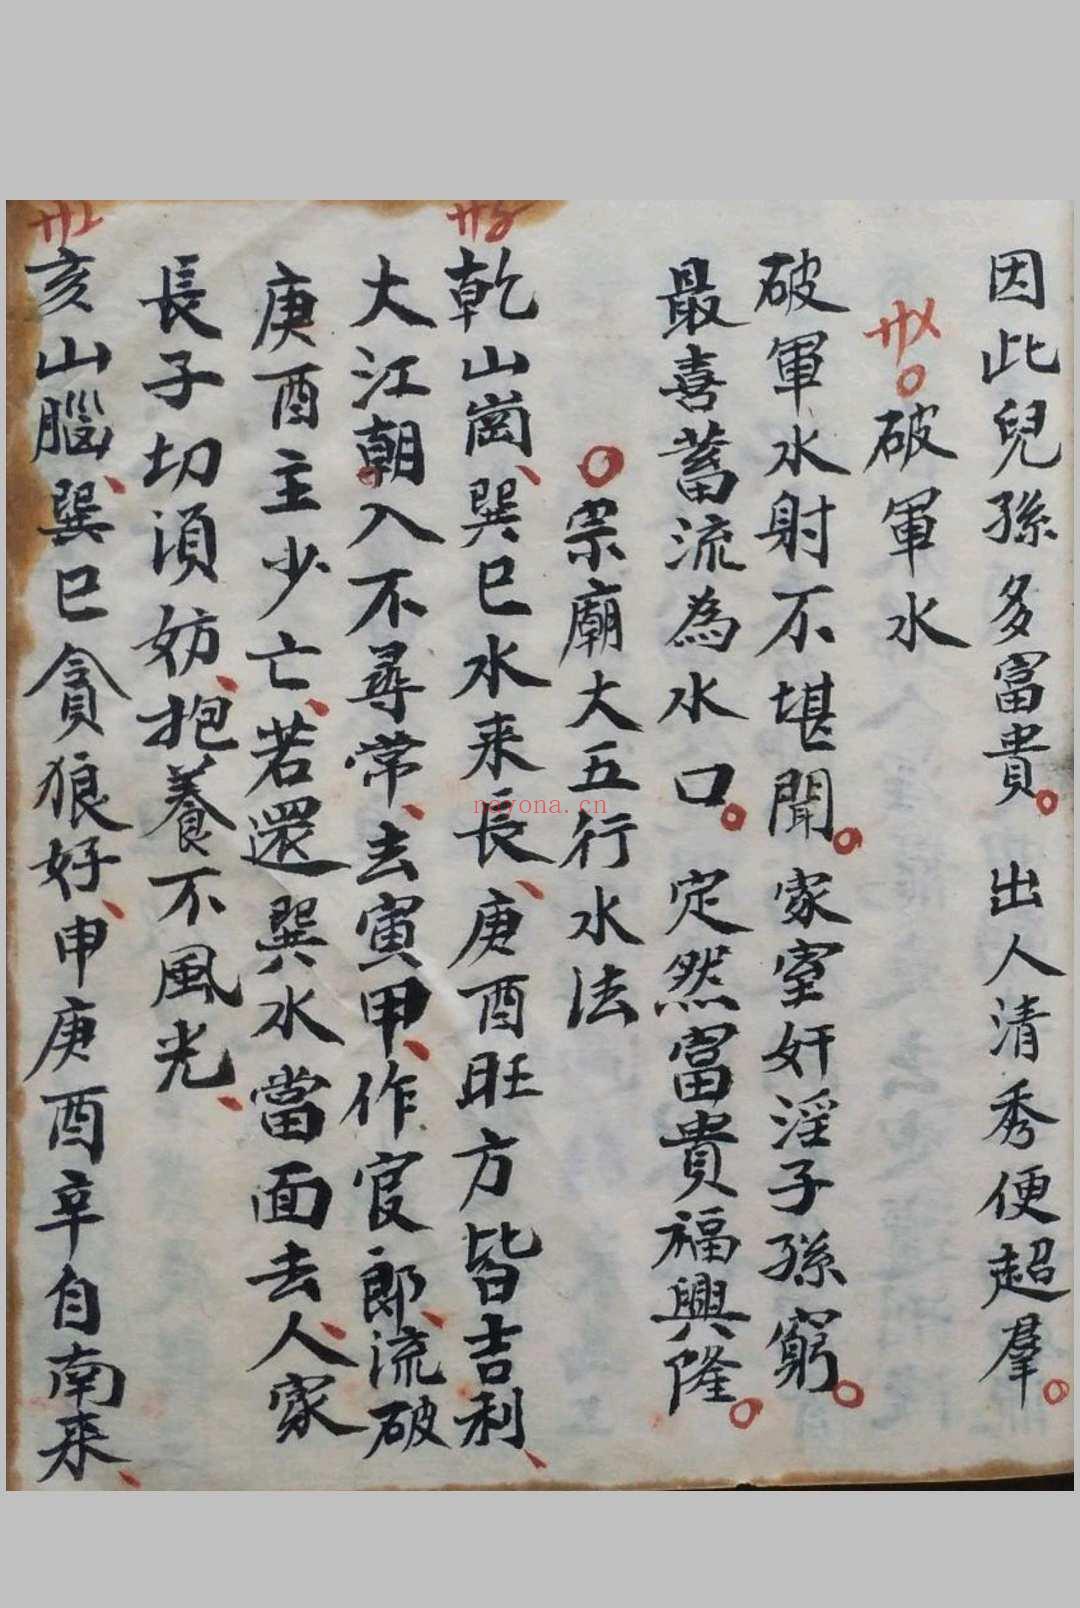 因此兒孫多富貴。出人清秀便超羣。
廿㐅。破軍水
破軍水射不堪聞。家室奸淫子孫窮。
最喜蓄流為水口。定然富貴福興隆。
○宗廟大五行水法
廿〥
乾山崗、巽巳水来長、庚酉旺方皆吉利、
大江朝入不尋常、去寅甲、作官郎、流破
庚酉主少亡、若還巽水當面去、人家
長子切須妨、抱養不風光、
亥山腦、巽巳貪狼好、申庚酉辛自南来、
nayona.cn